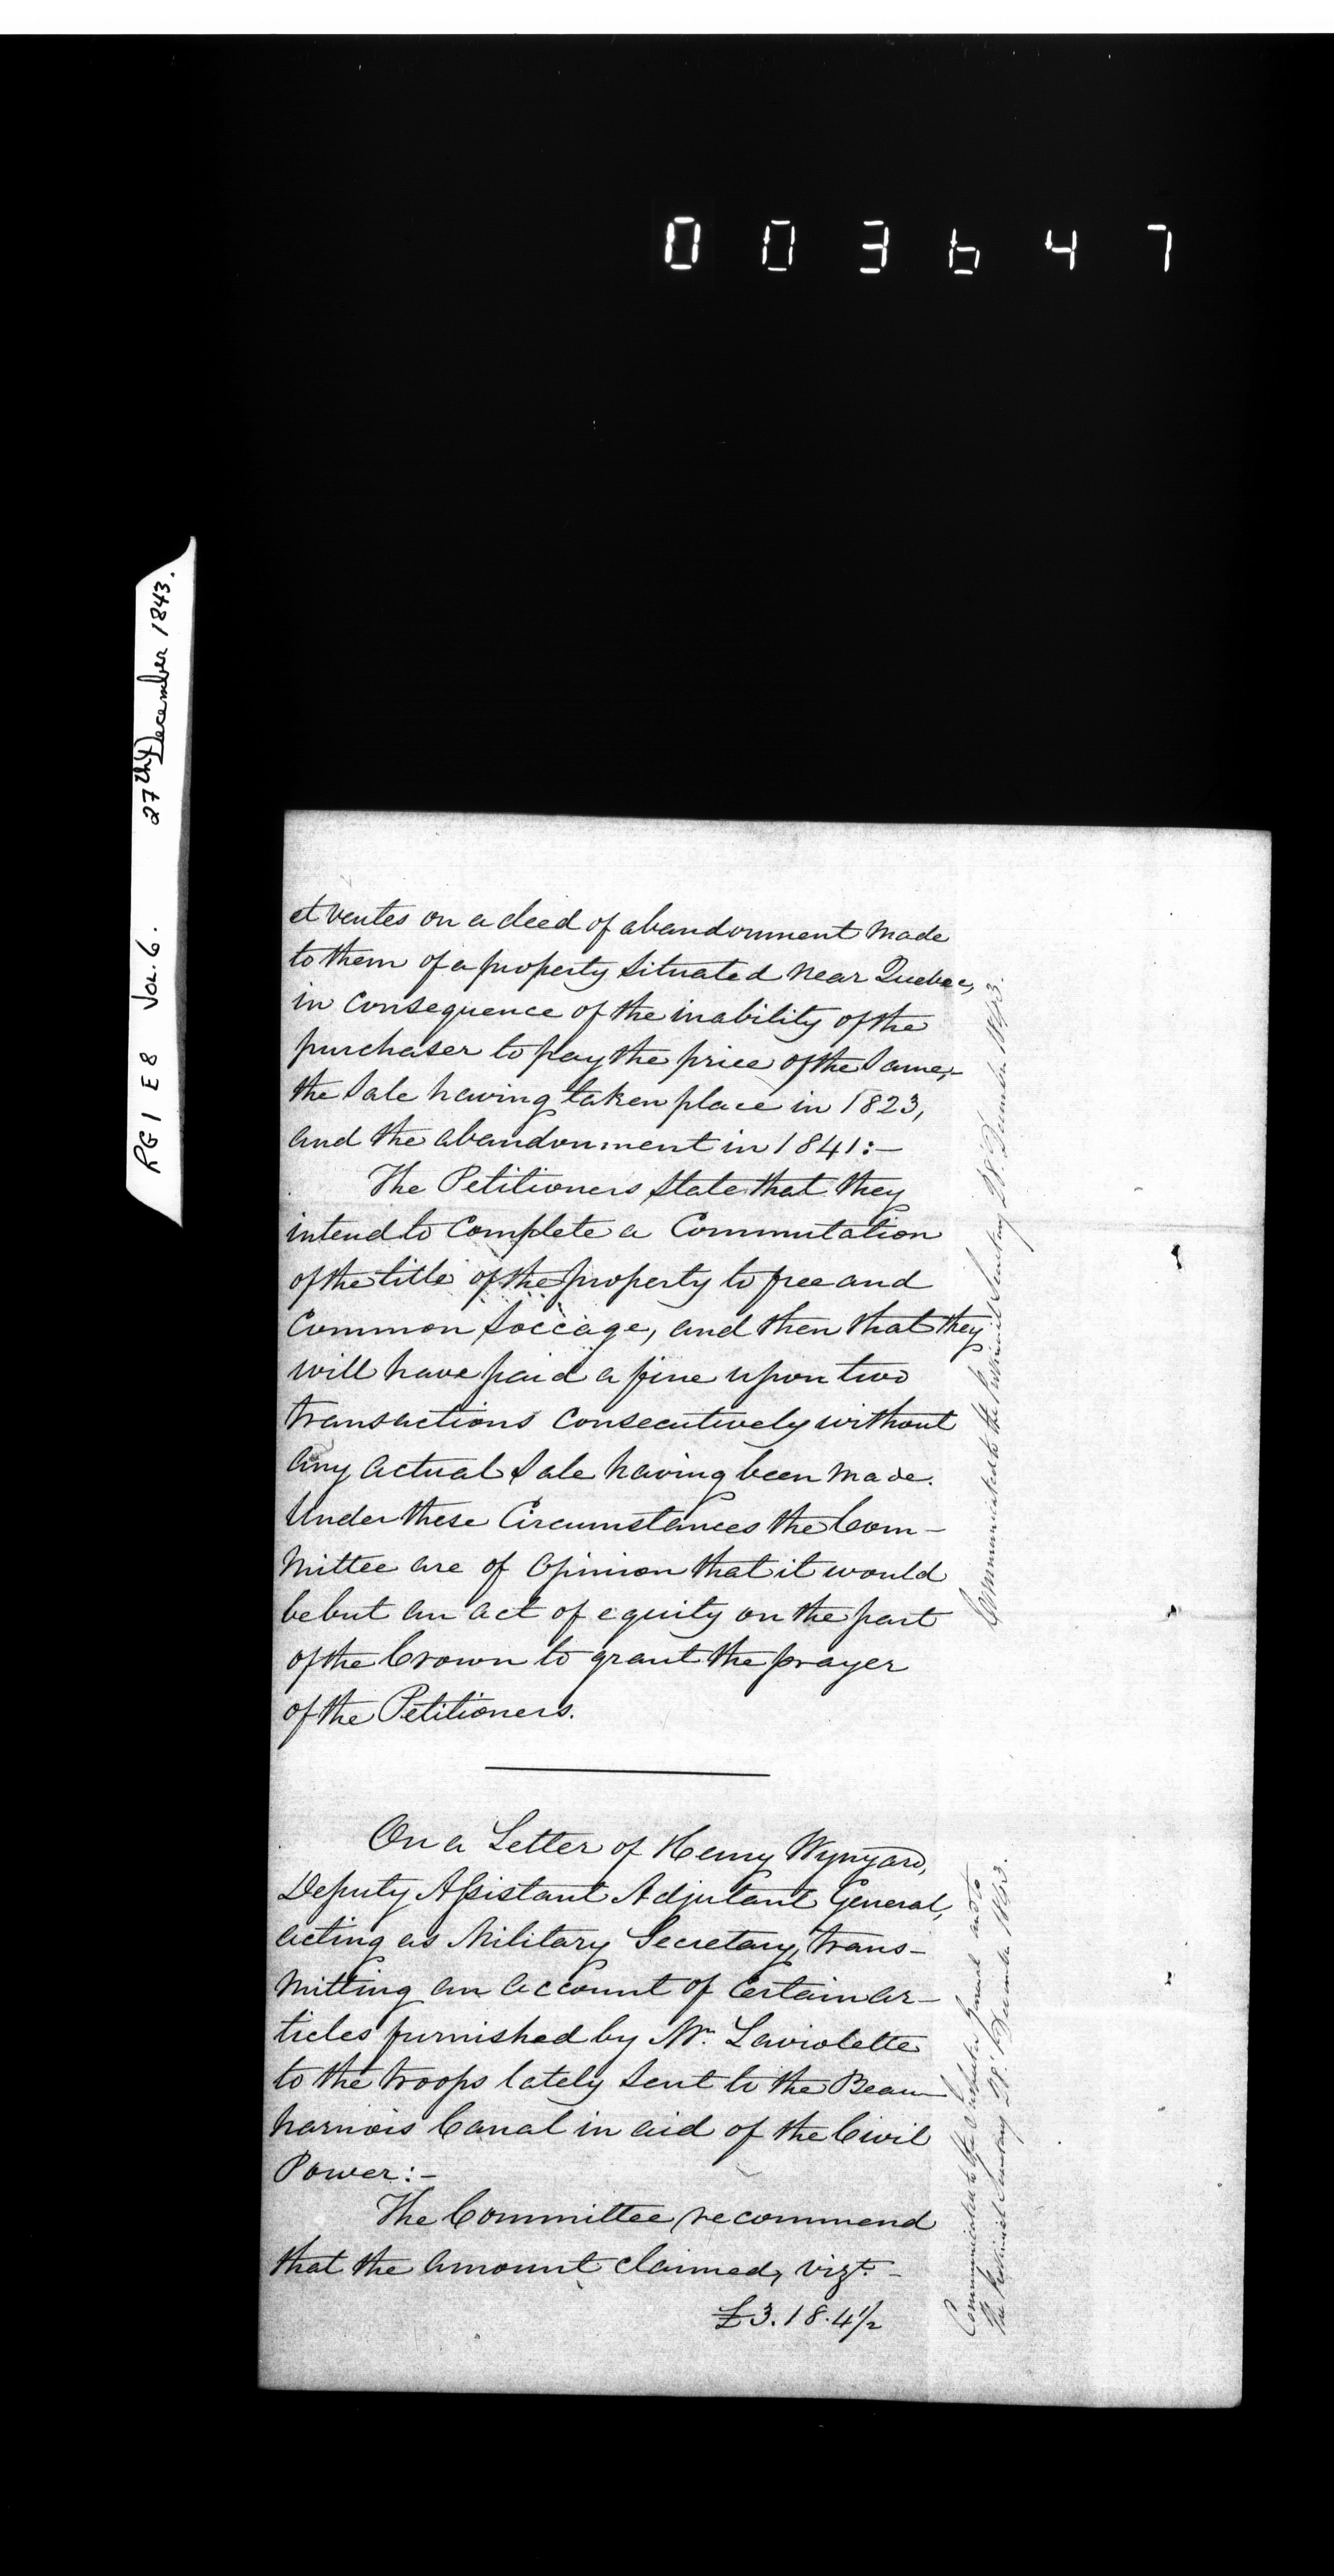 003647
RG 1 E 8 Vol. 6. 27th December 1843.
et ventes on a deed of abandonment made
to them of a property situated near Quebec,
in consequence of the inability of the
purchaser to pay the price of the same,-
the Sale having taken place in 1823,
and the abandonment in 1841:-
The Petitioners state that they
intend to complete a Commutation
of the title of the property to free and
Common Soccage, and then that they
will have paid a fine upon two
transactions consecutively without
any actual Sale having been made.
Under these Circumstances the Com-
mittee are of Opinion that it would
be but an act of equity on the part
of the Crown to grant the prayer
of the Petitioners.
Communicated to the Provincial Secretary 28 December 1843.
On a Letter of Henry Wynyard,
Deputy Assistant Adjutant General,
acting as Military Secretary, trans-
mitting an account of Certain ar-
ticles furnished by Mr. Laviolette
to the troops lately sent to the Beau-
harnois Canal in aid of the Civil
Power:-
The Committee recommend
that the amount claimed, vizt. -
£3.18.4½
Communicated to the Inspector General and to
the Provincial Secretary 28 December 1843.